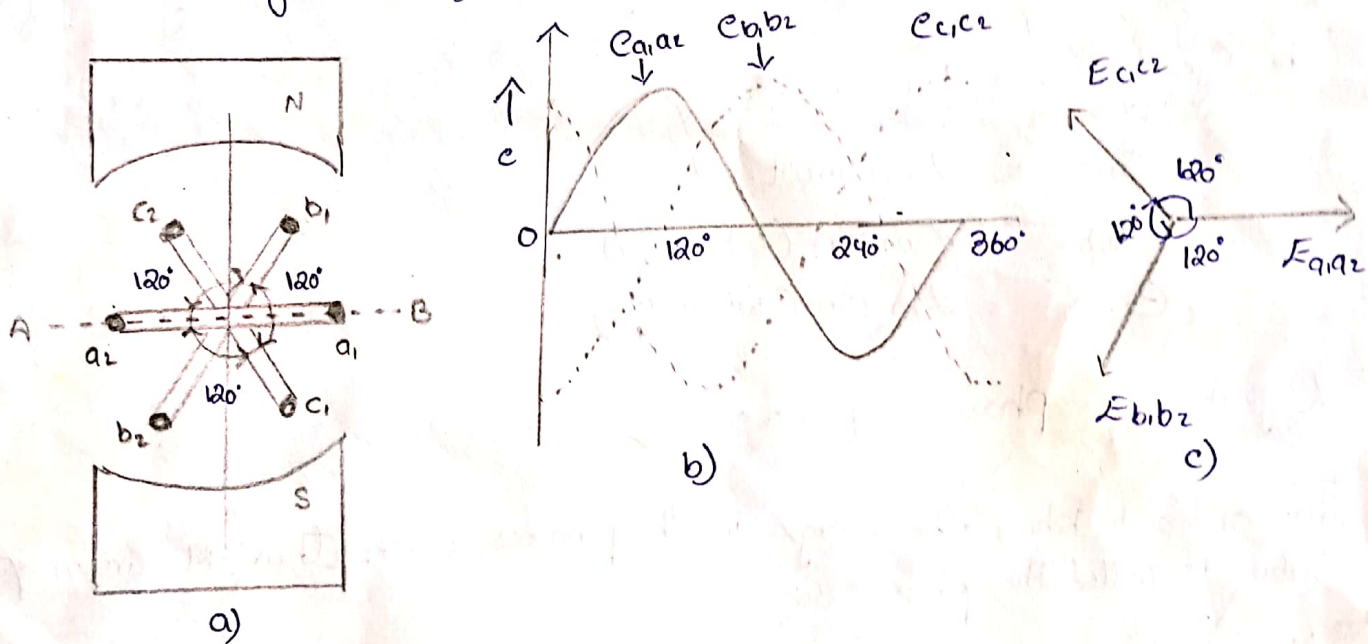 N
c₂ b₁
120° 120°
A B
a₂ a₁
120°
b₂ c₁
S
a)
e
ea₁a₂ eb₁b₂ ec₁c₂
0 120° 240° 360°
b)
Ec₁c₂
120°
120° 120°
Ea₁a₂
Eb₁b₂
c)